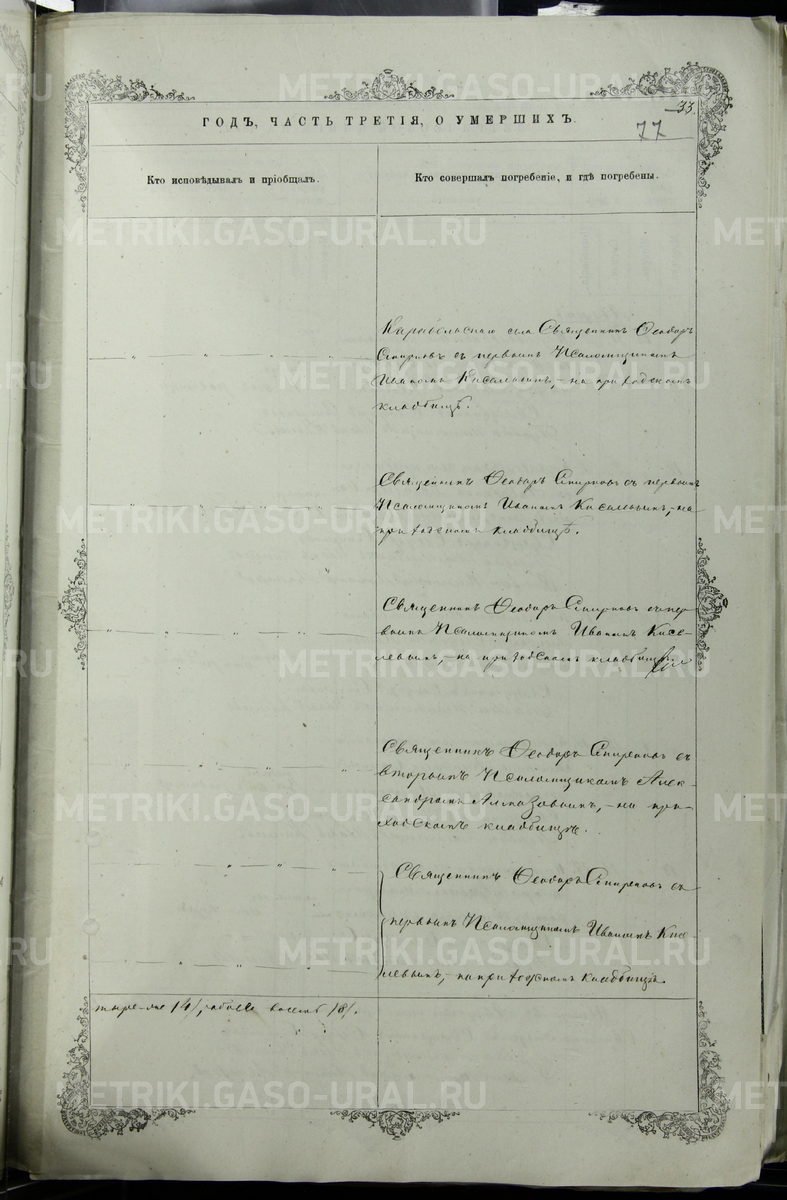 33.
77
ГОДЪ, ЧАСТЬ ТРЕТІЯ, О УМЕРШИХЪ.
Кто исповѣдывалъ и пріобщалъ.
Кто совершалъ погребеніе, и гдѣ погребены.
Карабольскаго села Священникъ Ѳеодоръ
Смирновъ съ первымъ Псаломщикомъ
Иваномъ Киселевымъ,- на приходскомъ
кладбищѣ.
Священникъ Ѳеодоръ Смирновъ съ первымъ
Псаломщикомъ Иваномъ Киселевымъ,- на
приходскомъ кладбищѣ.
Священникъ Ѳеодоръ Смирновъ съ пер-
вымъ Псаломщикомъ Иваномъ Кисе-
левымъ,- на приходскомъ кладбищѣ
Священникъ Ѳеодоръ Смирновъ съ
вторымъ Псаломщикомъ Алек-
сандромъ Алмазовымъ,- на при-
ходскомъ кладбищѣ.
Священникъ Ѳеодоръ Смирновъ съ
первымъ Псаломщикомъ Иваномъ Кисе-
левымъ,- на приходскомъ кладбищѣ.
тыре /4/, обоего восемь /8/.
METRIKI.GASO-URAL.RU